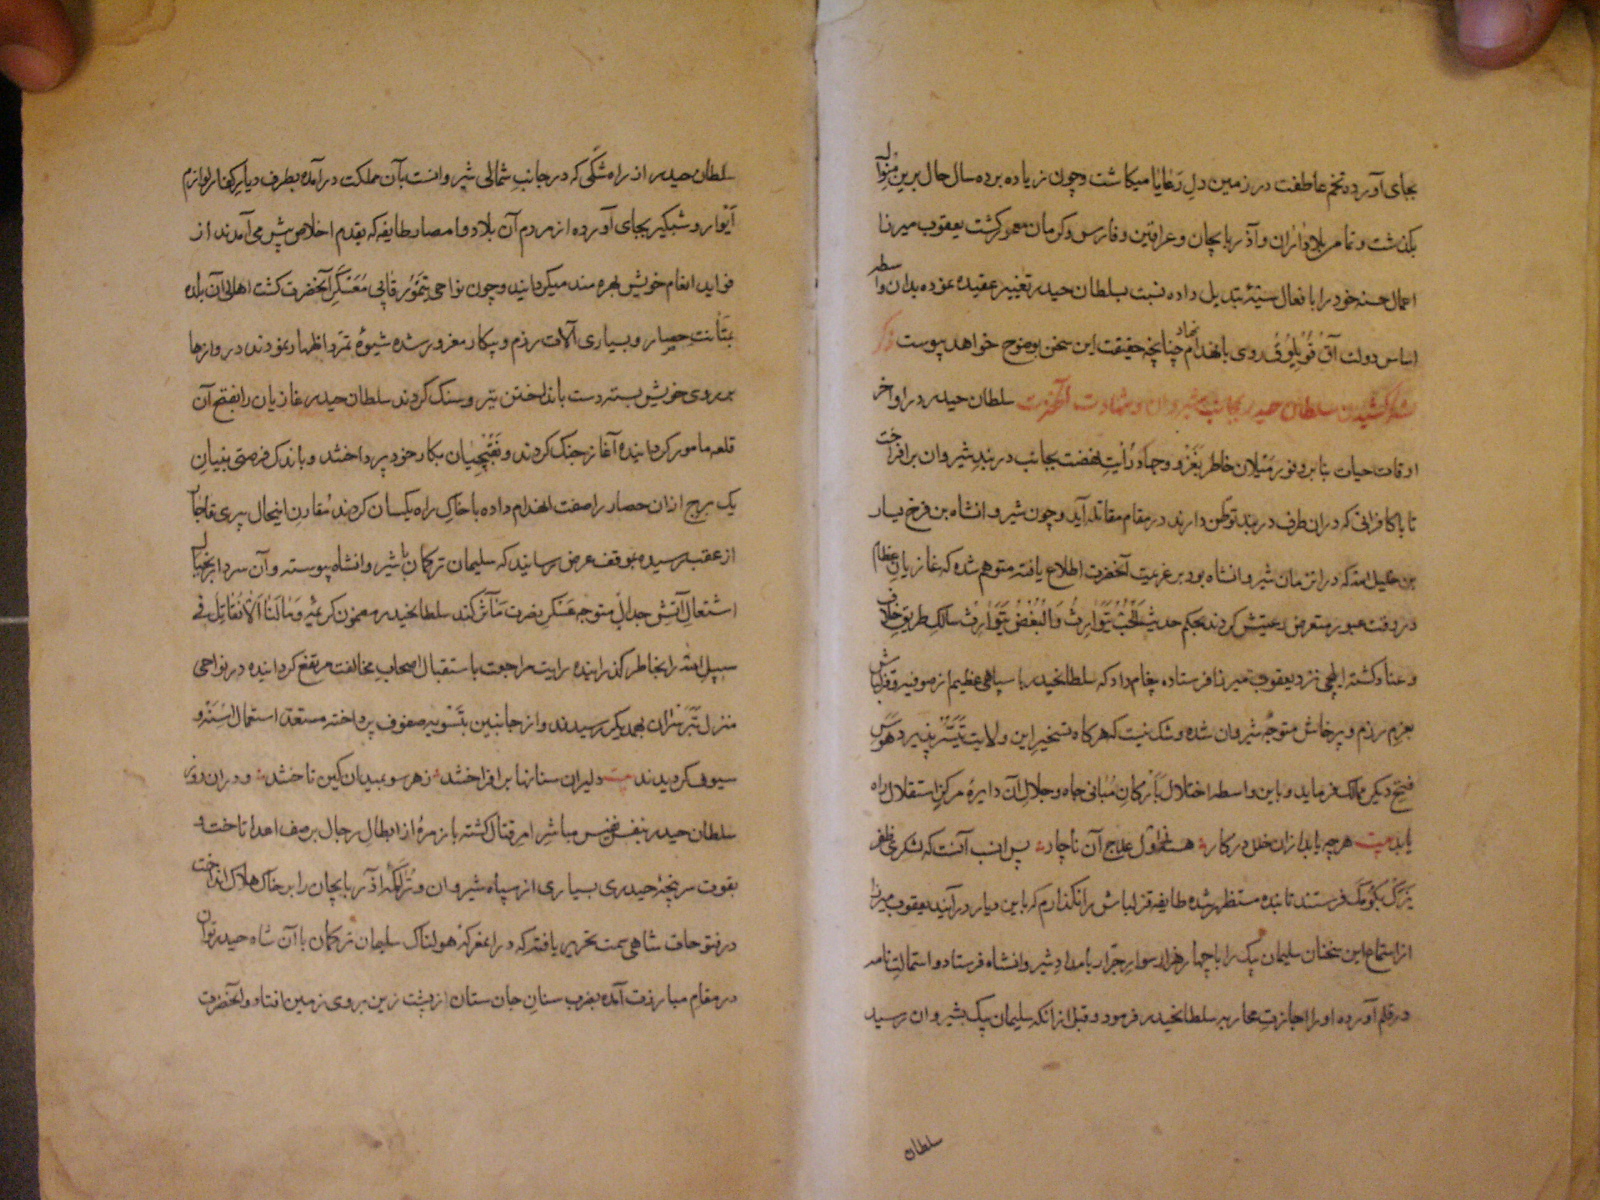 بجای آورده تخم عاطفت در زمین دل رعایا میکاشت و چون زیاده بر ده سال حال برین منوال
بگذشت و تمامر بلاد اران و آذربایجان و عراقین و فارس و کرمان معمور گشت یعقوب میرزا
اعمال حسنه خود را بافعال سیئه تبدیل داده نسبت بسلطان حیدر تغییر عقیده نموده بدان واسطه
اساس دولت آق قویلوق روی بانهدام نهاد چنانچه حقیقت این سخن بوضوح خواهد پیوست ذکر
لشکر کشیدن سلطان حیدر بجانب شیروان و شهادت آنحضرت سلطان حیدر در اواخر
اوقات حیات بنابر وفور میلان خاطر بغزو و جهاد رایت نهضت بجانب دربند شیروان برافراخت
تا با کافرانی که دران طرف دربند توطن دارند در مقام مقاتله آید و چون شیروانشاه بن فرخ یسار
بن خلیل الله که در انزمان شیروانشاه بود بر عزیمت آنحضرت اطلاع یافته متوهم شده که غازیان عظام
در وقت عبور متعرض رعیتش کردند بحکم حدیث الحب یتوارث والبغض یتوارث سالک طریق خلاف
و عناد گشته ایلچی نزد یعقوب میرزا فرستاده پیغام داد که سلطانحیدر با سپاهی عظیم از صوفیه و قزلباش
بعزم رزم و پرخاش متوجه شیروان شده و شک نیست که هرگاه تسخیر این ولایت تیسر پذیرد هوس
فتح دیگر ممالک فرماید و باین واسطه اختلال بارکان مبانی جاه و جلال آن دایره مرکز استقلال راه
یابد بیت هر چه یابد ازان خلل در کار هست اول علاج آن ناچار پس انسب آنست که لشکری ظفر
یزک بکومک فرستند تا بنده مستظهر شده طایفه قزلباش را نگذارم که باین دیار درآیند یعقوب میرزا
از استماع این سخنان سلیمان بیک را با چهار هزار سوار جرار بامداد شیروانشاه فرستاد و استمالت نامه
در قلم آورده او را اجازت محاربه سلطانحیدر فرمود و قبل از انکه سلیمان بیک بشیروان رسید
سلطان
سلطان حیدر از راه شکی که در جانب شمالی شیروانست بآن مملکت درآمده بطرف دیار کفار لوازم
ایوار و شبگیر بجای آورده از مردم آن بلاد و امصار طایفه که بقدم اخلاص پیش می آمدند از
فواید انعام خویش بهره مند میکردانید و چون نواحی تیمور قاپی معسکر آنحضرت گشت اهالی آن بلده
بمتانت حصار و بسیاری آلات رزم و پیکار مغرور شده شیوه تمرد اظهار نمودند دروازها
بر روی خویش بسته دست بانداختن تیر و سنک کردند سلطان حیدر غازیان را بفتح آن
قلعه مامور کردانیده آغاز جنک کردند و نقبچیان بکار خود پرداختند و باندک فرصتی بنیان
یک برج ازان حصار را صفت انهدام داده با خاک راه یکسان کردند مقارن اینحال پیری قاجار
از عقب رسیده بموقف عرض رسانید که سلیمان ترکمان با شیروانشاه پیوسته و آن سردار بخیال
اشتعال آتش جدال متوجه عسکر نصرت مآثر گشتند سلطانحیدر مضمون کریمه و مالنا الا نقاتل فی
سبیل الله را بخاطر گذرانیده رایت مراجعت باستقبال اصحاب مخالفت مرتفع کردانیده در نواحی
منزل تبرسران بهمدیگر رسیدند و از جانبین بتسویه صفوف پرداخته مستعد استعمال اسنه و
سیوف کردیدند بیت دلیران سنانها بر افراختند ز هر سو بمیدان کین تاختند و دران روز
سلطان حیدر بنفس نفیس مباشر امر قتال گشته با زمره از ابطال رجال بر صف اعدا تاخت و
بقوت سرپنجه حیدری بسیاری از سپاه شیروان و تراکمه آذربایجان را بر خاک هلاک انداخت
در فتوحات شاهی سمت تحریر یافته که در ان معرکه هولناک سلیمان ترکمان با آن شاه حیدر توان
در مقام مبارزت آمده بضرب سنان جان ستان از پشت زین بروی زمین افتاد و آنحضرت